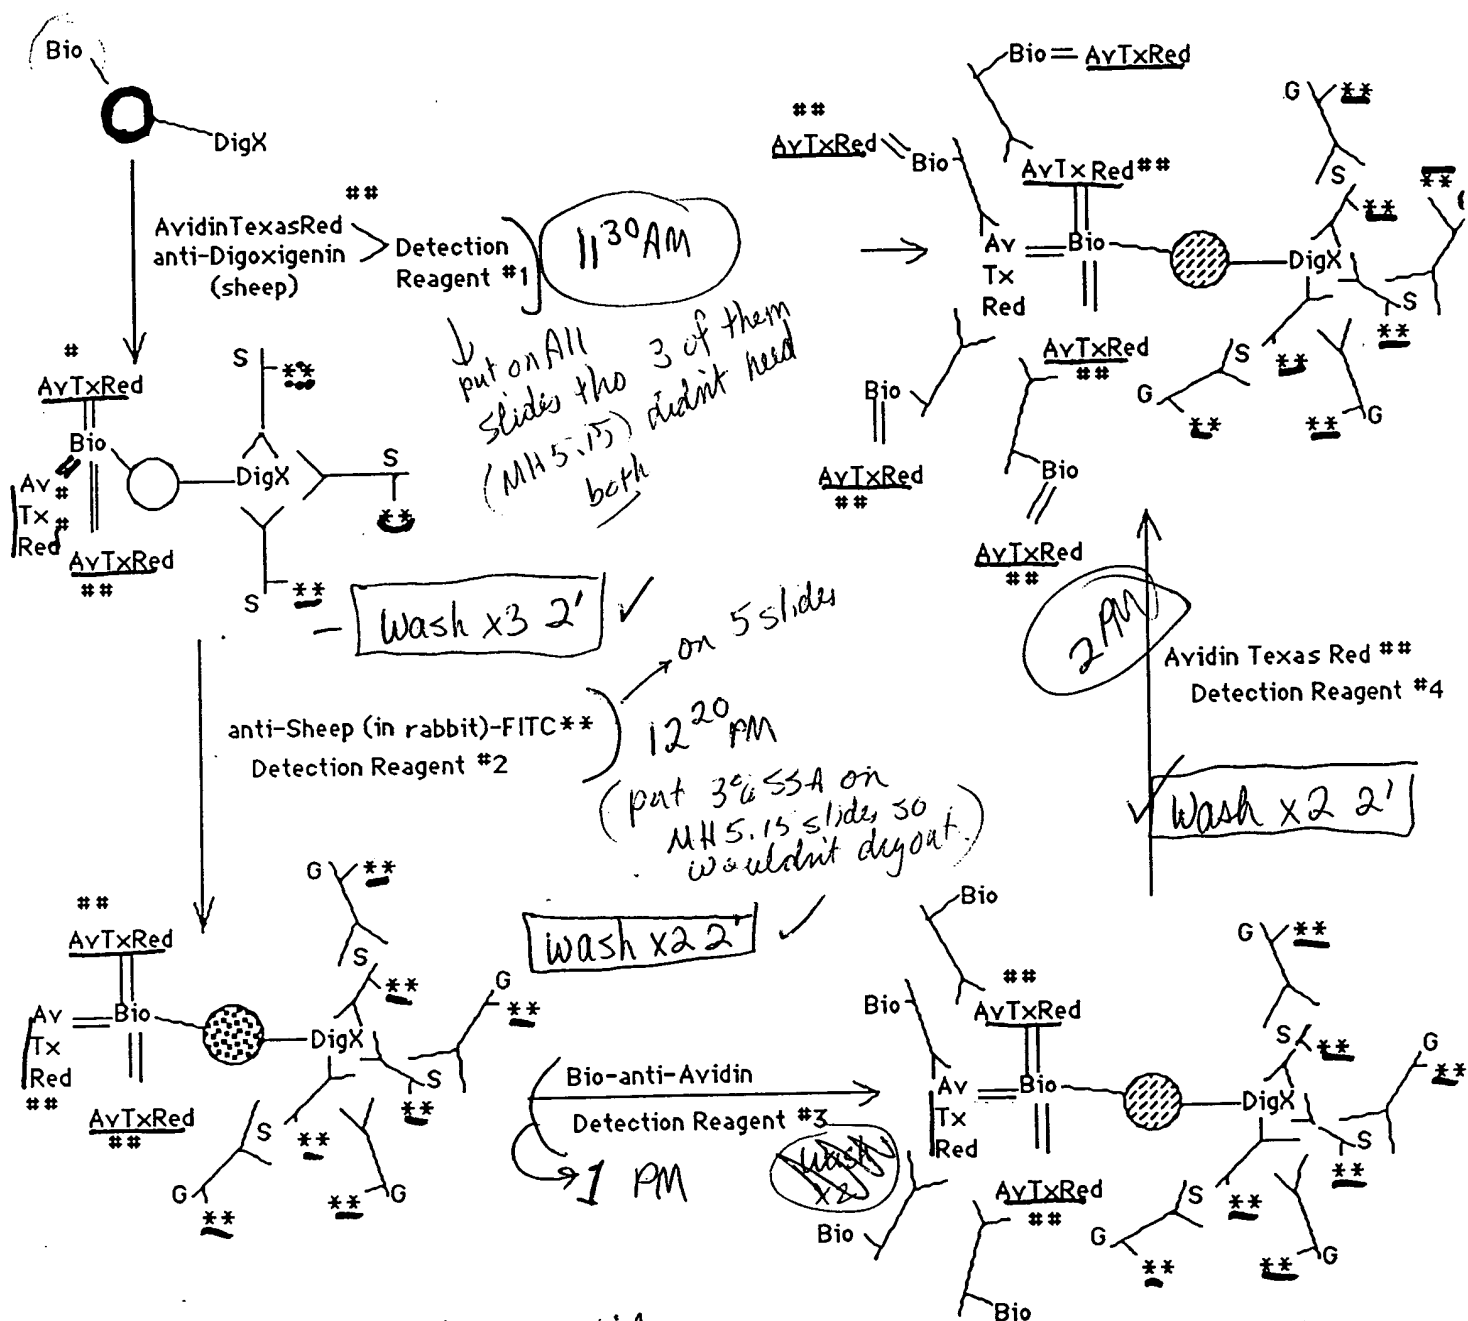 Bio
DigX
##
AvidinTexasRed
anti-Digoxigenin
(sheep)
Detection
Reagent #1
11 30 AM
put on All
slides tho 3 of them
(MH 5.15) didn't need
both
#
AvTxRed
Bio
Av #
Tx #
Red
AvTxRed
##
DigX
S
**
S
**
S
**
Wash x3 2' ✓
on 5 slides
anti-Sheep (in rabbit)-FITC**
Detection Reagent #2
12 20 PM
(put 3% SSA on
MH 5.15 slides so
wouldn't dry out.)
wash x2 2' ✓
##
AvTxRed
Av
Tx
Red
##
Bio
AvTxRed
##
DigX
G
**
S
**
G
**
S
**
S
**
G
**
G
**
Bio-anti-Avidin
Detection Reagent #3
1 PM
wash
x2
Bio
Bio
##
AvTxRed
Av
Tx
Red
Bio
AvTxRed
##
Bio
Bio
DigX
G
**
S
**
G
**
S
**
S
**
G
**
G
**
✓ Wash x2 2'
2 PM
Avidin Texas Red ##
Detection Reagent #4
Bio
AvTxRed
##
AvTxRed
Bio
AvTxRed##
Av
Tx
Red
Bio
AvTxRed
##
Bio
AvTxRed
##
Bio
AvTxRed
##
DigX
G
**
S
**
**
S
**
S
**
G
**
G
**